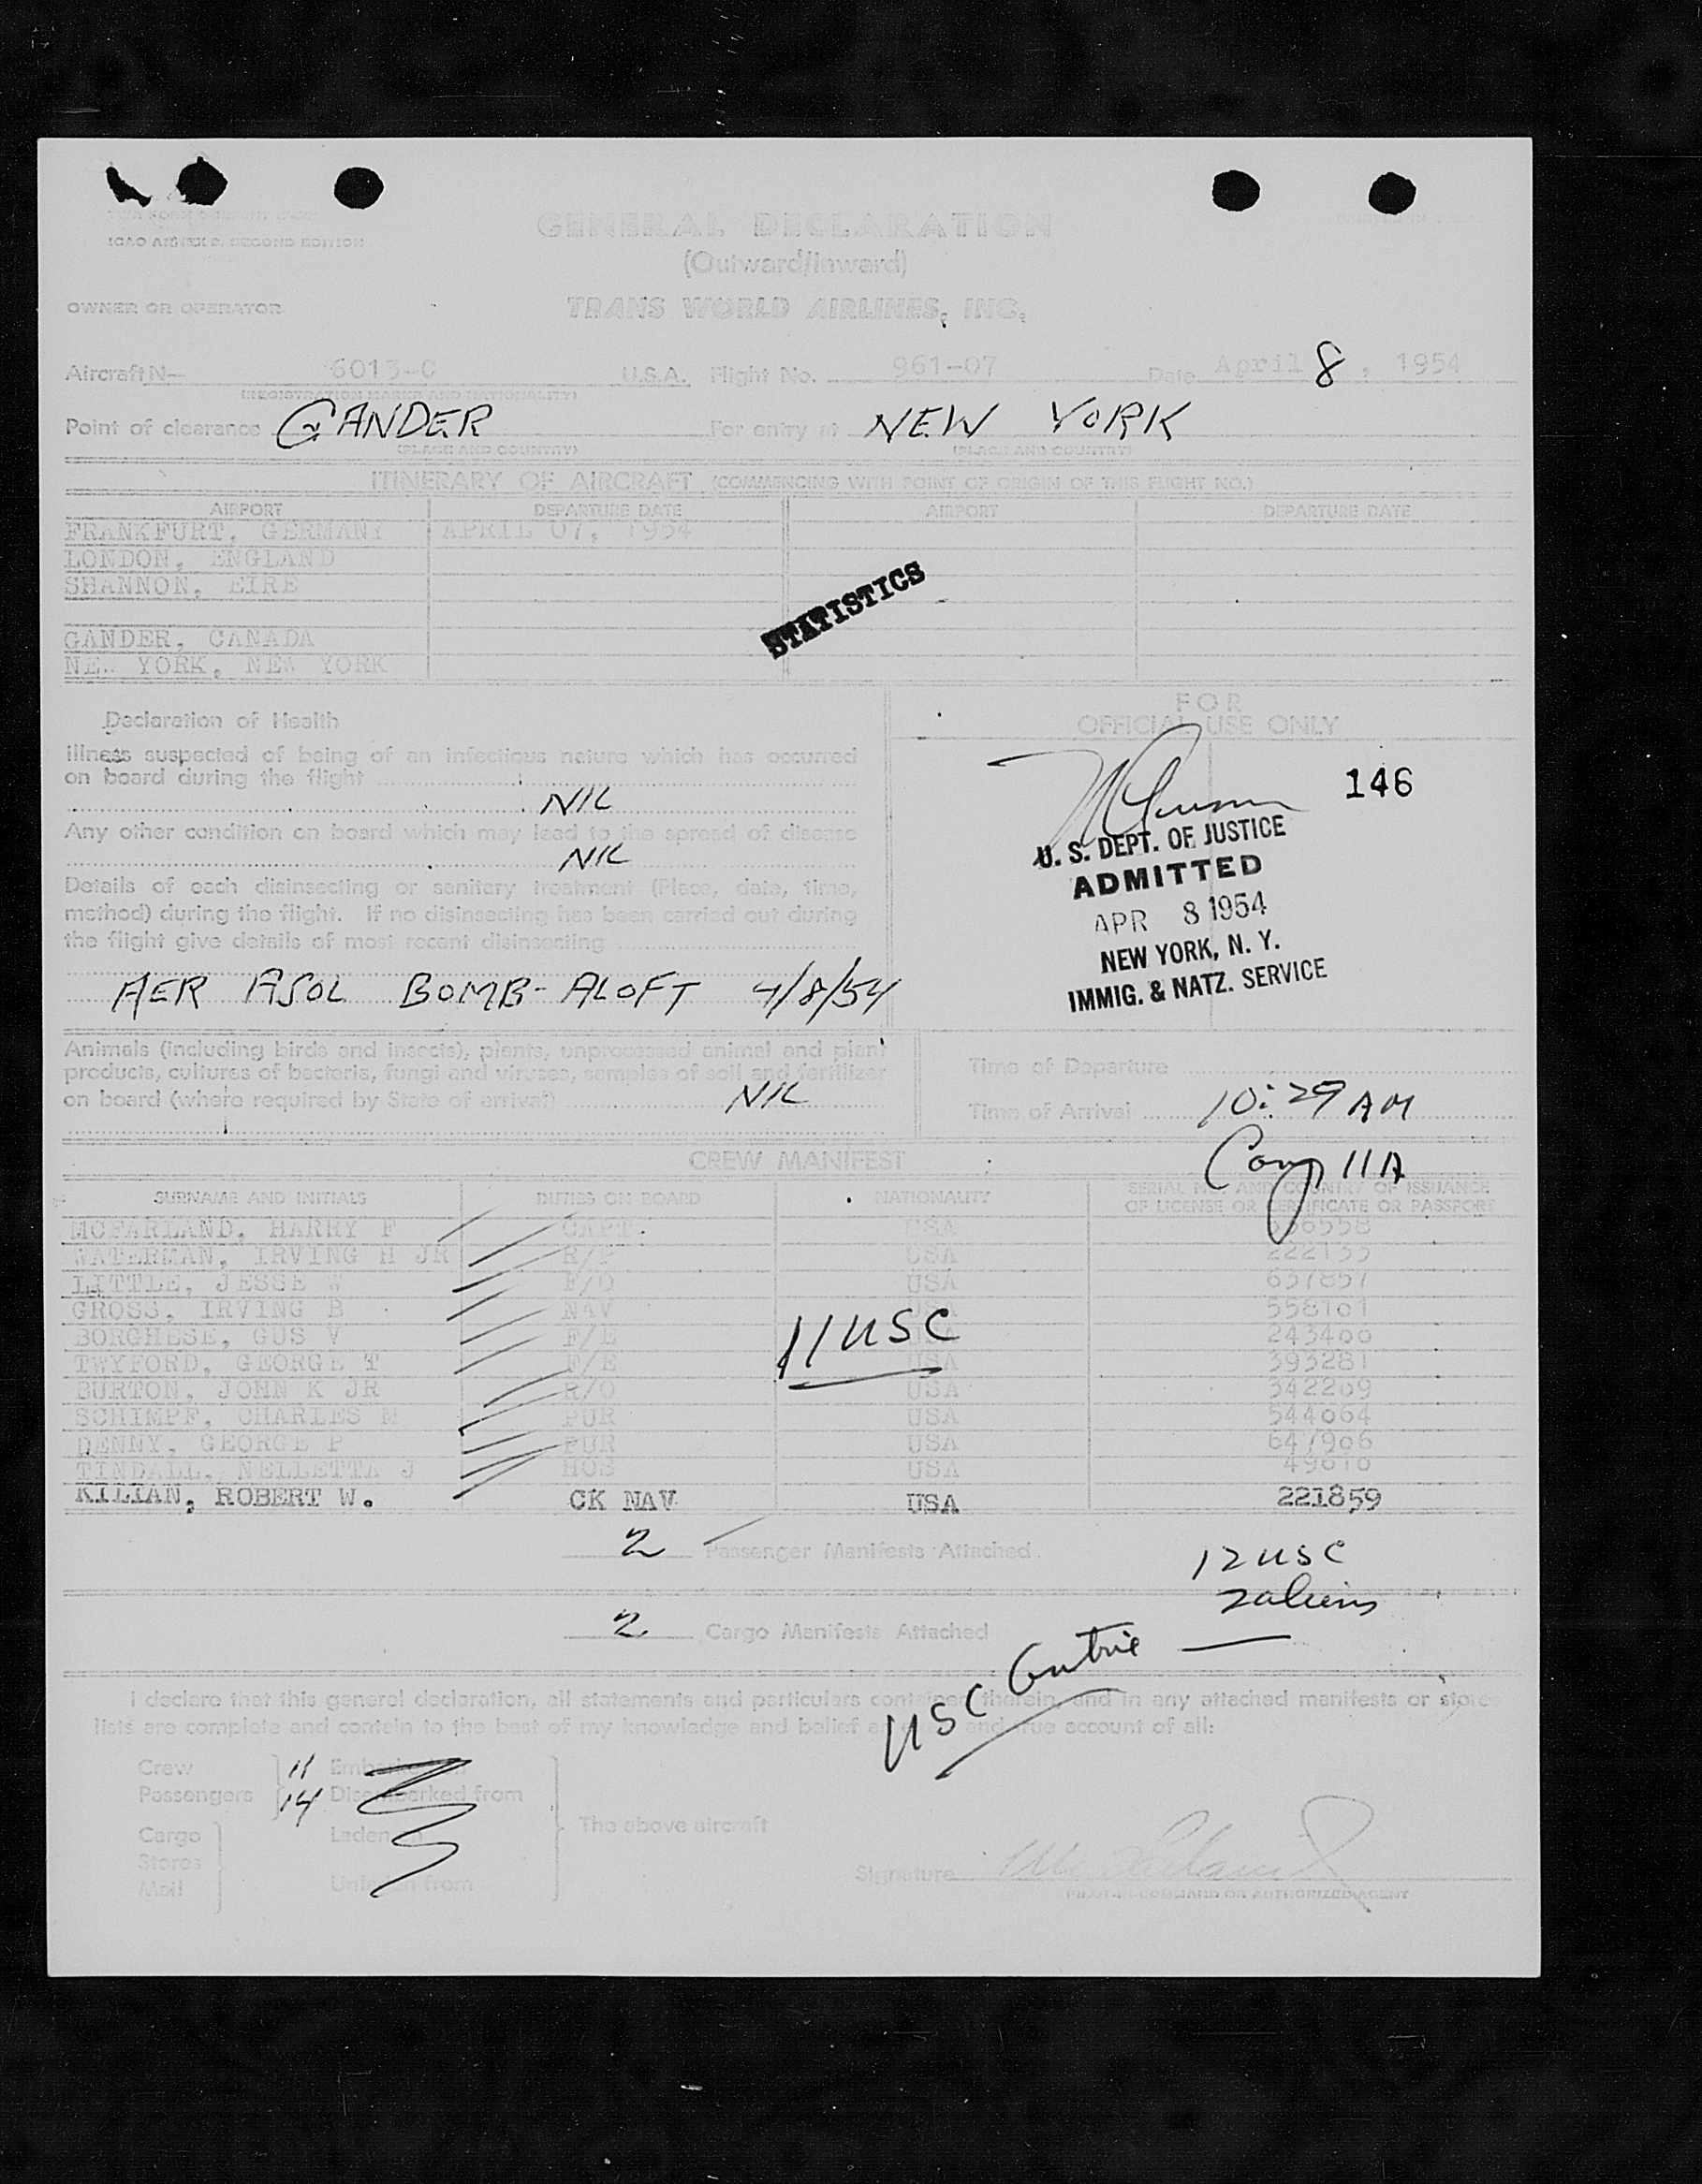 ICAO ANNEX 9, SECOND EDITION
GENERAL DECLARATION
(Outward/Inward)
OWNER OR OPERATOR TRANS WORLD AIRLINES, INC.
Aircraft N— 6013-C U.S.A. Flight No. 961-07 Date April 8, 1954
(REGISTRATION MARKS AND NATIONALITY)
Point of clearance GANDER For entry at NEW YORK
(PLACE AND COUNTRY) (PLACE AND COUNTRY)
ITINERARY OF AIRCRAFT (COMMENCING WITH POINT OF ORIGIN OF THIS FLIGHT NO.)
AIRPORT DEPARTURE DATE AIRPORT DEPARTURE DATE
FRANKFURT, GERMANY APRIL 07, 1954
LONDON, ENGLAND
SHANNON, EIRE
STATISTICS
GANDER, CANADA
NEW YORK, NEW YORK
FOR
OFFICIAL USE ONLY
Declaration of Health
Illness suspected of being of an infectious nature which has occurred
on board during the flight
NIL
Any other condition on board which may lead to the spread of disease
NIL
Details of each disinsecting or sanitary treatment (Place, date, time,
method) during the flight. If no disinsecting has been carried out during
the flight give details of most recent disinsecting
AER ASOL BOMB-ALOFT 4/8/54
146
U. S. DEPT. OF JUSTICE
ADMITTED
APR 8 1954
NEW YORK, N. Y.
IMMIG. & NATZ. SERVICE
Animals (including birds and insects), plants, unprocessed animal and plant
products, cultures of bacteria, fungi and viruses, samples of soil and fertilizer
on board (where required by State of arrival) NIL
Time of Departure
Time of Arrival 10:29 AM
Comp 11A
CREW MANIFEST
SURNAME AND INITIALS DUTIES ON BOARD NATIONALITY SERIAL NO. AND COUNTRY OF ISSUANCE
OF LICENSE OR CERTIFICATE OR PASSPORT
MCFARLAND, HARRY F CAPT. USA
WATERMAN, IRVING H JR USA
LITTLE, JESSE W F/O USA 657857
GROSS, IRVING B NAV 558101
BORGHESE, GUS V F/E 243400
TWYFORD, GEORGE T F/E USA 393281
BURTON, JOHN K JR R/O USA 342209
SCHIMPF, CHARLES M PUR USA 544064
DENNY, GEORGE P PUR USA 647906
TINDALL, NELLETTA J HOS USA 49610
KILIAN, ROBERT W. CK NAV USA 221859
11 USC
2 Passenger Manifests Attached
12 USC
2 aliens
2 Cargo Manifests Attached
USC
I declare that this general declaration, all statements and particulars contained therein, and in any attached manifests or stores
lists are complete and contain to the best of my knowledge and belief an exact and true account of all:
Crew 11 Embarked on
Passengers 14 Disembarked from
Cargo Laden on The above aircraft
Stores
Mail Unladen from
Signature
PILOT-IN-COMMAND OR AUTHORIZED AGENT